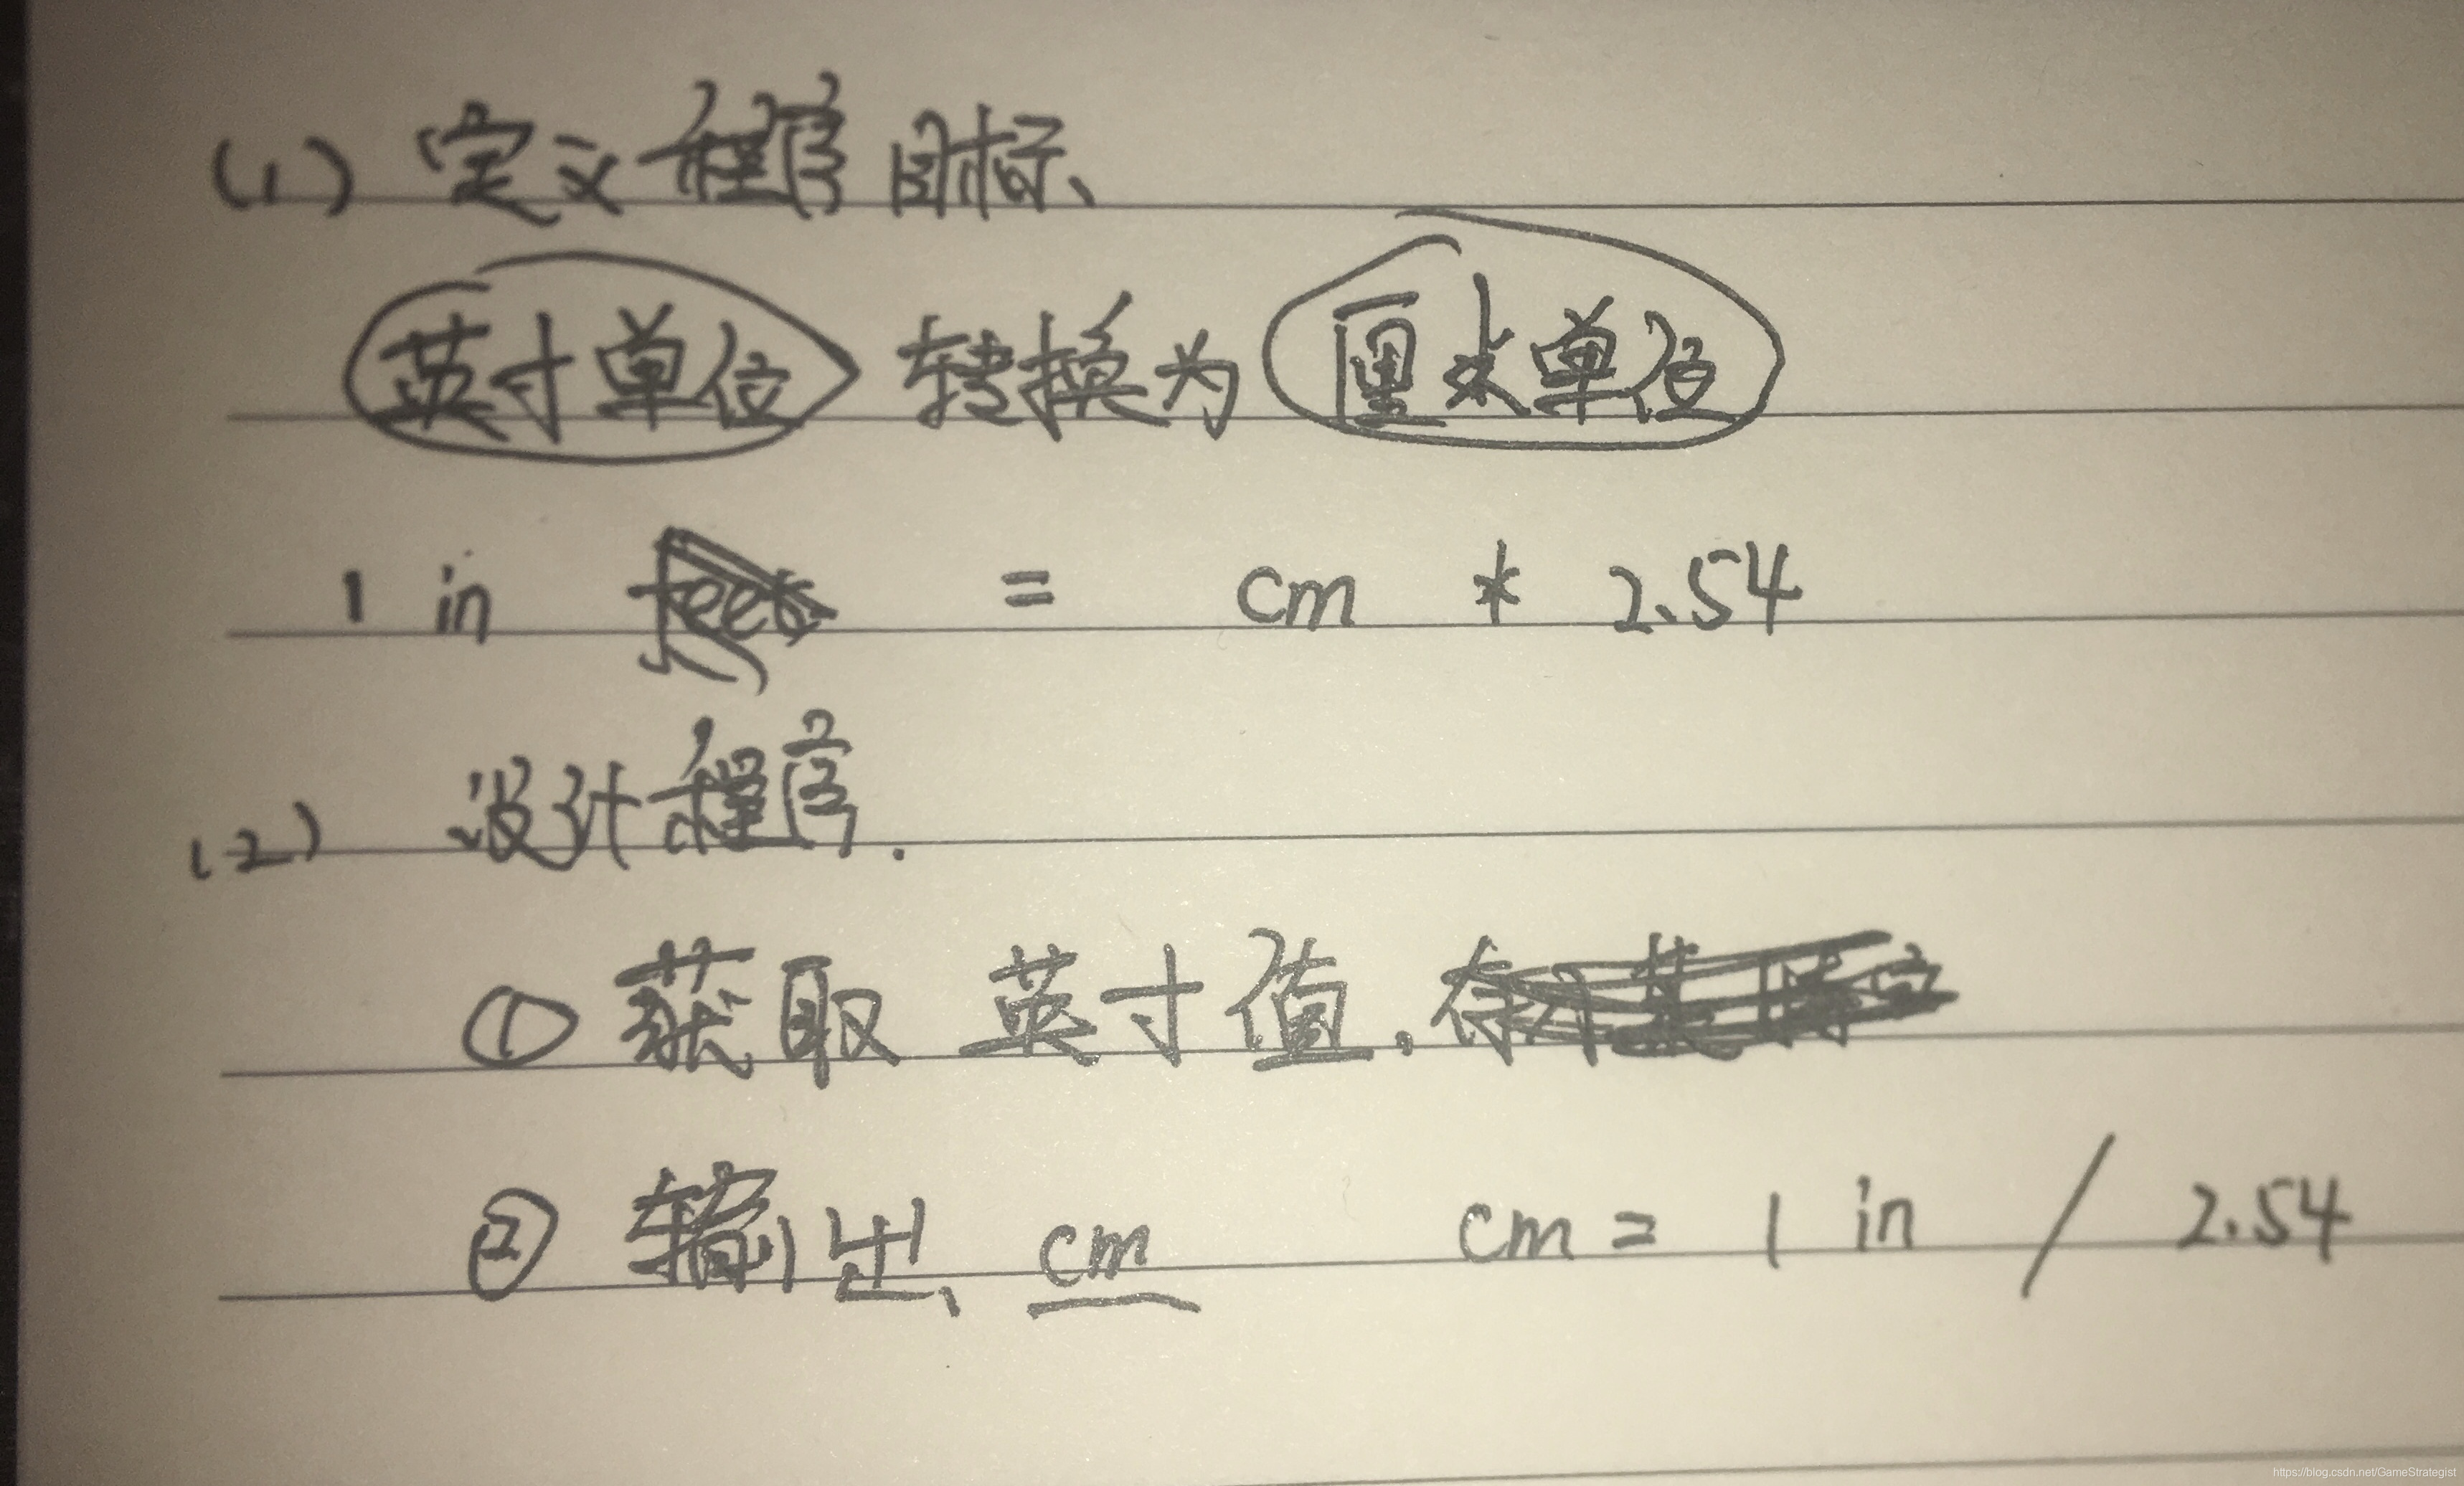 (1) 定义程序目标、
英寸单位 转换为 厘米单位
1 in = cm * 2.54
(2) 设计程序.
① 获取 英寸值.
② 输出、cm cm = 1 in / 2.54
https://blog.csdn.net/GameStrategist